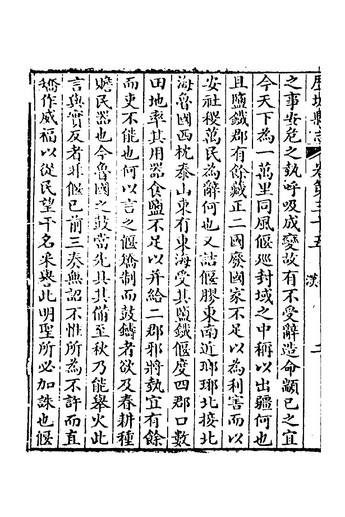 歷城縣志 卷第三十五 漢 二
之事安危之埶呼吸成變故有不受辭造命顓己之宜
今天下為一萬里同風偃巡封域之中稱以出疆何也
且鹽鐵郡有餘藏正二國廢國家不足以為利害而以
安社稷萬民為辭何也又詰偃膠東南近琅邪北接北
海魯國西枕泰山東有東海受其鹽鐵偃度四郡口數
田地率其用器食鹽不足以并給二郡邪將埶宜有餘
而吏不能也何以言之偃矯制而鼓鑄者欲及春耕種
贍民器也今魯國之鼓當先具其備至秋乃能舉火此
言與實反者非偃已前三奏無詔不惟所為不許而直
矯作威福以從民望干名采譽此明聖所必加誅也偃